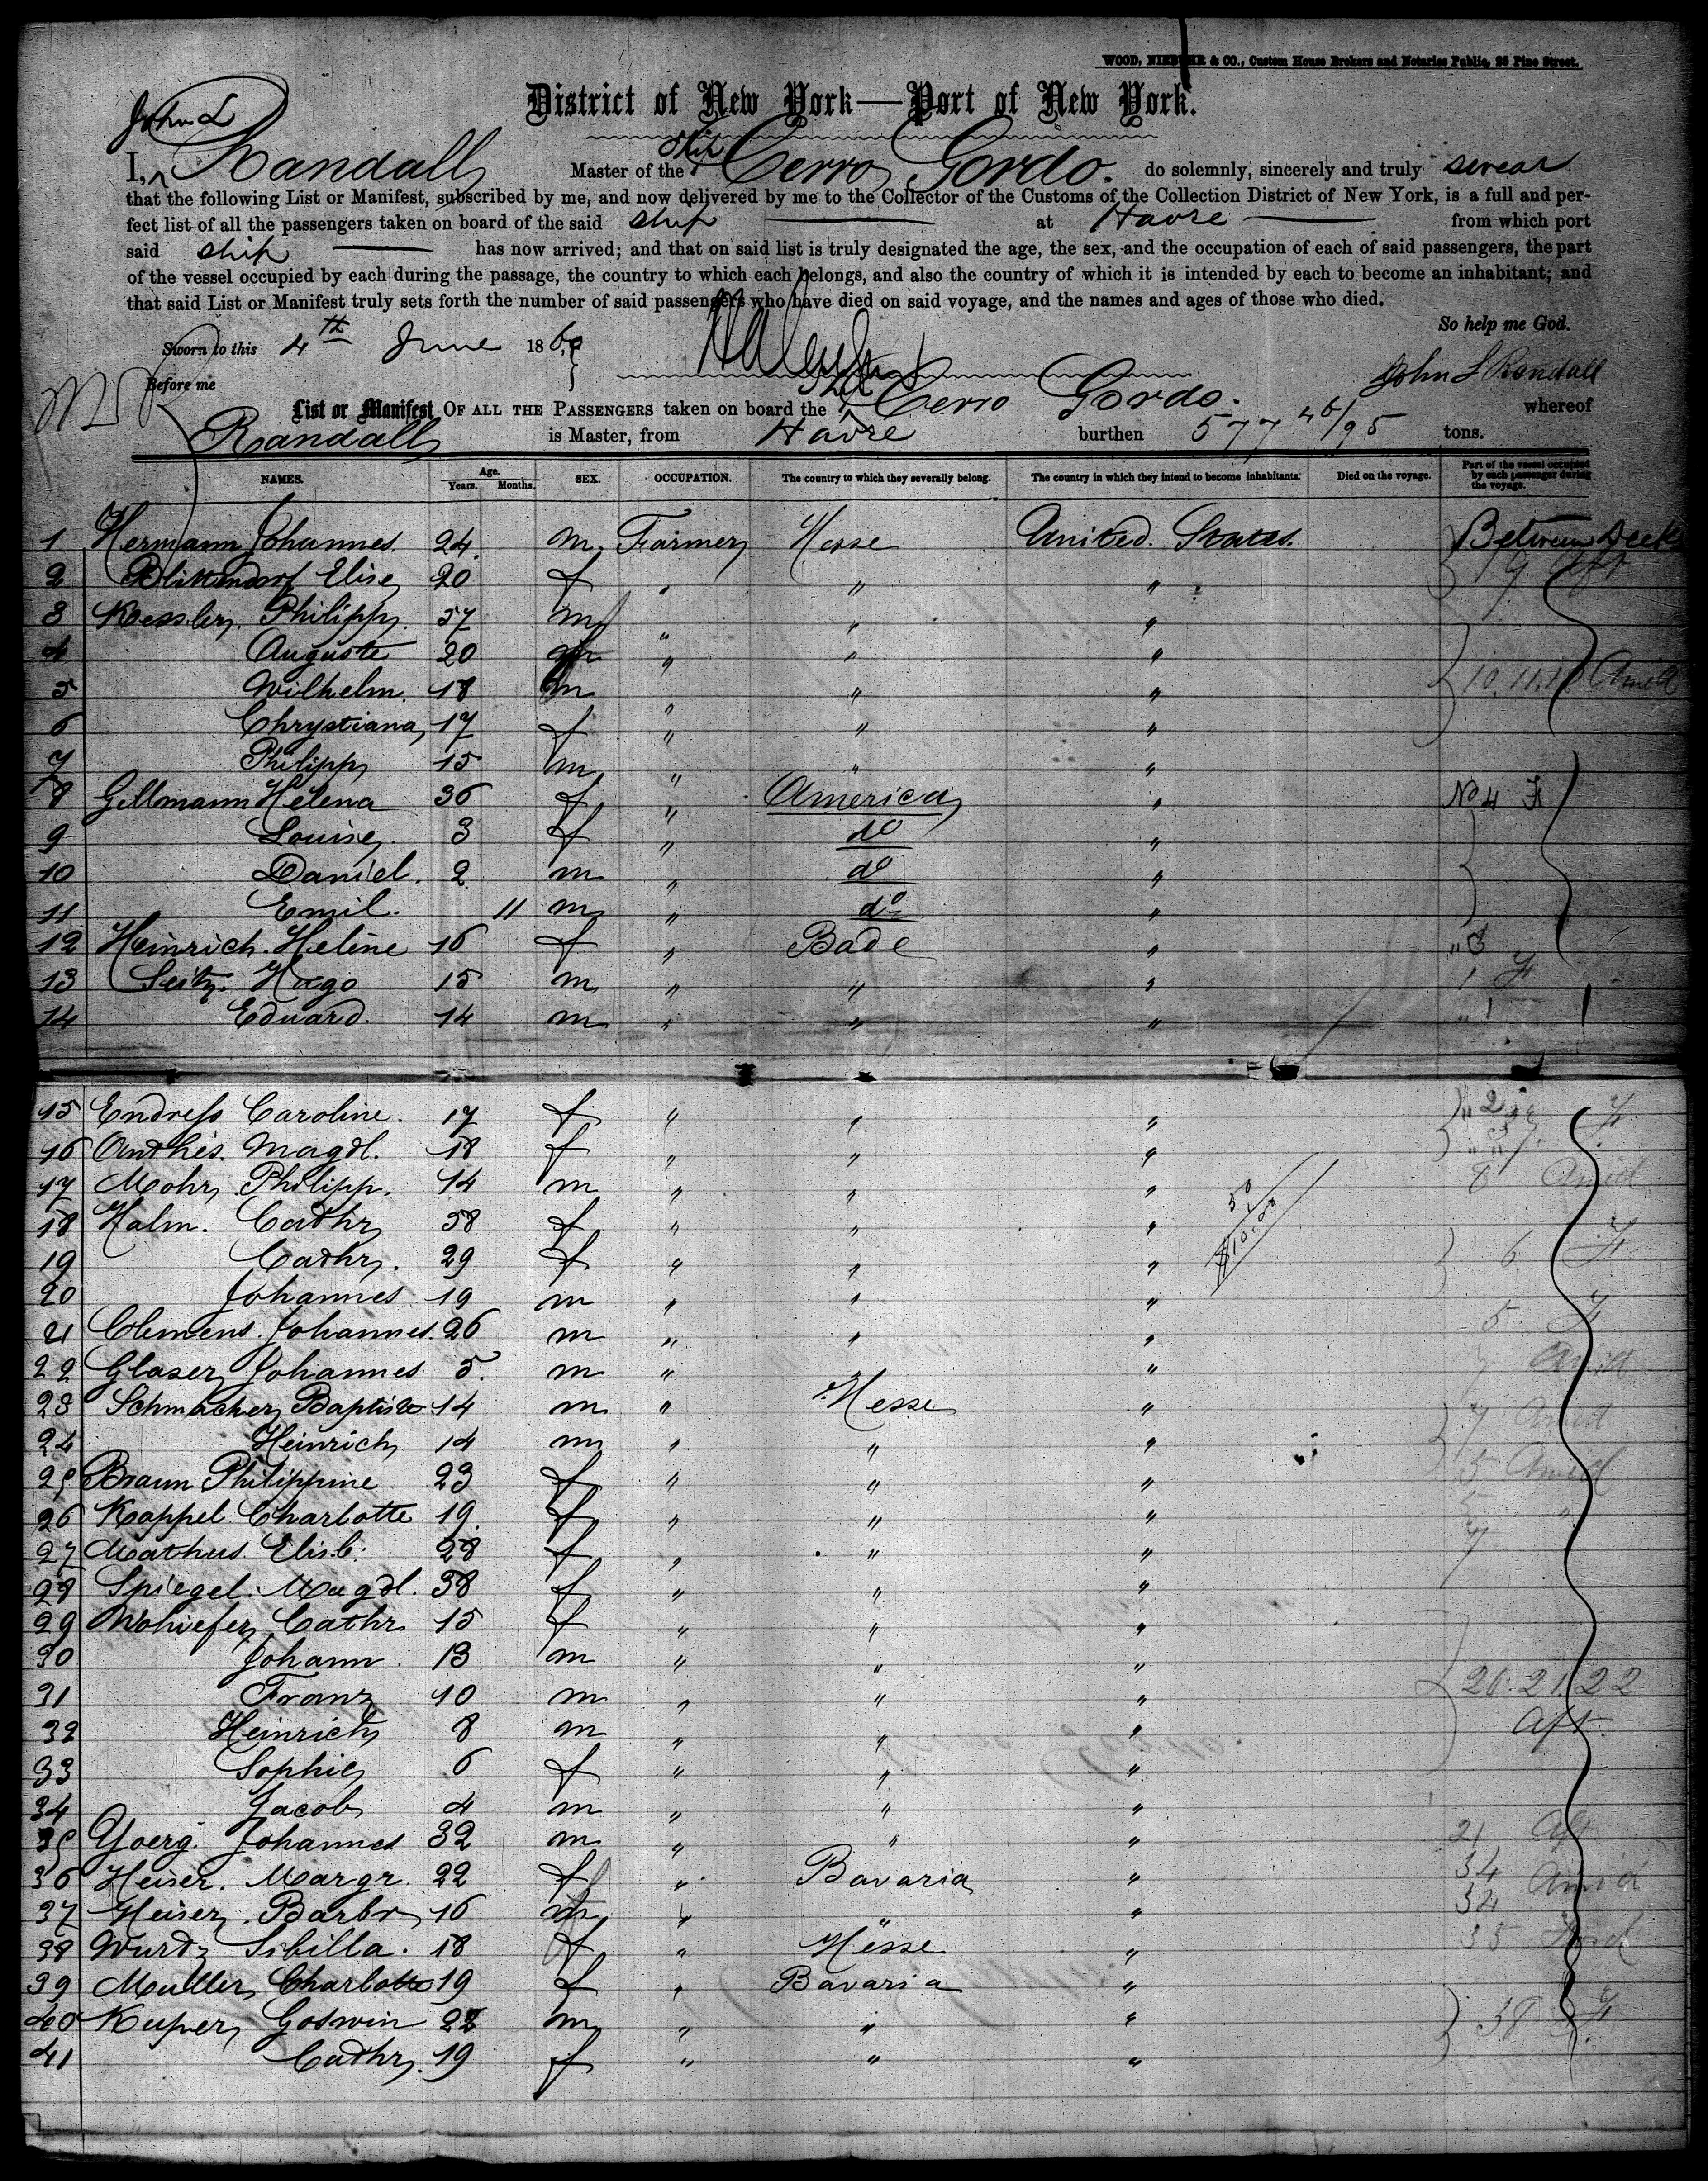 WOOD, NIEBUHR & CO., Custom House Brokers and Notaries Public, 25 Pine Street.
District of New York—Port of New York.
John L
I, Randall Master of the Ship Cerro Gordo. do solemnly, sincerely and truly swear
that the following List or Manifest, subscribed by me, and now delivered by me to the Collector of the Customs of the Collection District of New York, is a full and per-
fect list of all the passengers taken on board of the said ship at Havre from which port
said ship has now arrived; and that on said list is truly designated the age, the sex, and the occupation of each of said passengers, the part
of the vessel occupied by each during the passage, the country to which each belongs, and also the country of which it is intended by each to become an inhabitant; and
that said List or Manifest truly sets forth the number of said passengers who have died on said voyage, and the names and ages of those who died.
So help me God.
Sworn to this 4th June 186
Before me John L Randall
List or Manifest OF ALL THE PASSENGERS taken on board the Ship Cerro Gordo. whereof
Randall is Master, from Havre burthen 577 46/95 tons.
NAMES. Age. Years. Months. SEX. OCCUPATION. The country to which they severally belong. The country in which they intend to become inhabitants. Died on the voyage. Part of the vessel occupied by each passenger during the voyage.
1 Hermann Johannes. 24. m. Farmer Hesse United States. Between Decks
2 Elise 20 f " " " 9 Aft
3 Kessler Philipp. 57 m " " "
4 Auguste 20 " " "
5 Wilhelm. 18 m " " " 10, 11, 12 Amid
6 Chrystiana 17 f " " "
7 Philipp 15 m " " "
8 Gillmann Helena 36 f " America " No 4 F
9 Louise. 3 f " do "
10 Daniel. 2 m " do "
11 Emil. 11 m " do "
12 Heinrich. Heline 16 f " Bade " " 3
13 Seitz. Hugo 15 m " " " 1 F
14 Eduard. 14 m " " " " 1
15 Endress Caroline. 17 f " " " " 2 F
16 Anthis. Magdl. 18 f " " "
17 Mohr Philipp. 14 m " " " 8 Amid
18 Halm. Cathr 58 f " " " 50
19 Cathr. 29 f " " " $10.00 6 F
20 Johannes 19 m " " "
21 Clemens. Johannes. 26 m " " " 5 F
22 Glaser Johannes 5. m " " " 7 Amid
23 Schmacher Baptiste 14 m " Hesse "
24 Heinrich 14 m " " " 7 Amid
25 Braun Philippine 23 f " " " 5 Amid
26 Kappel Charlotte 19. f " " " 5 "
27 Mathus. Elisb: 28 f " " " 7
28 Spiegel. Magdl. 38 f " " "
29 Cathr 15 f " " "
30 Johann. 13 m " " "
31 Franz 10 m " " " 20. 21. 22
32 Heinrich 8 m " " " Aft
33 Sophie 6 f " " "
34 Jacob 4 m " " "
35 Yoerg. Johannes 32 m " " " 21 Aft
36 Heiser. Margr. 22 f " Bavaria " 34 Amid
37 Heiser. Barbr 16 " " " 34
38 Wurtz Sibilla. 18 f " Hesse " 35
39 Muller Charlotte 19 f " Bavaria "
40 Kuper Goswin 22 m " " " 38 F
41 Cathr. 19 f " " "